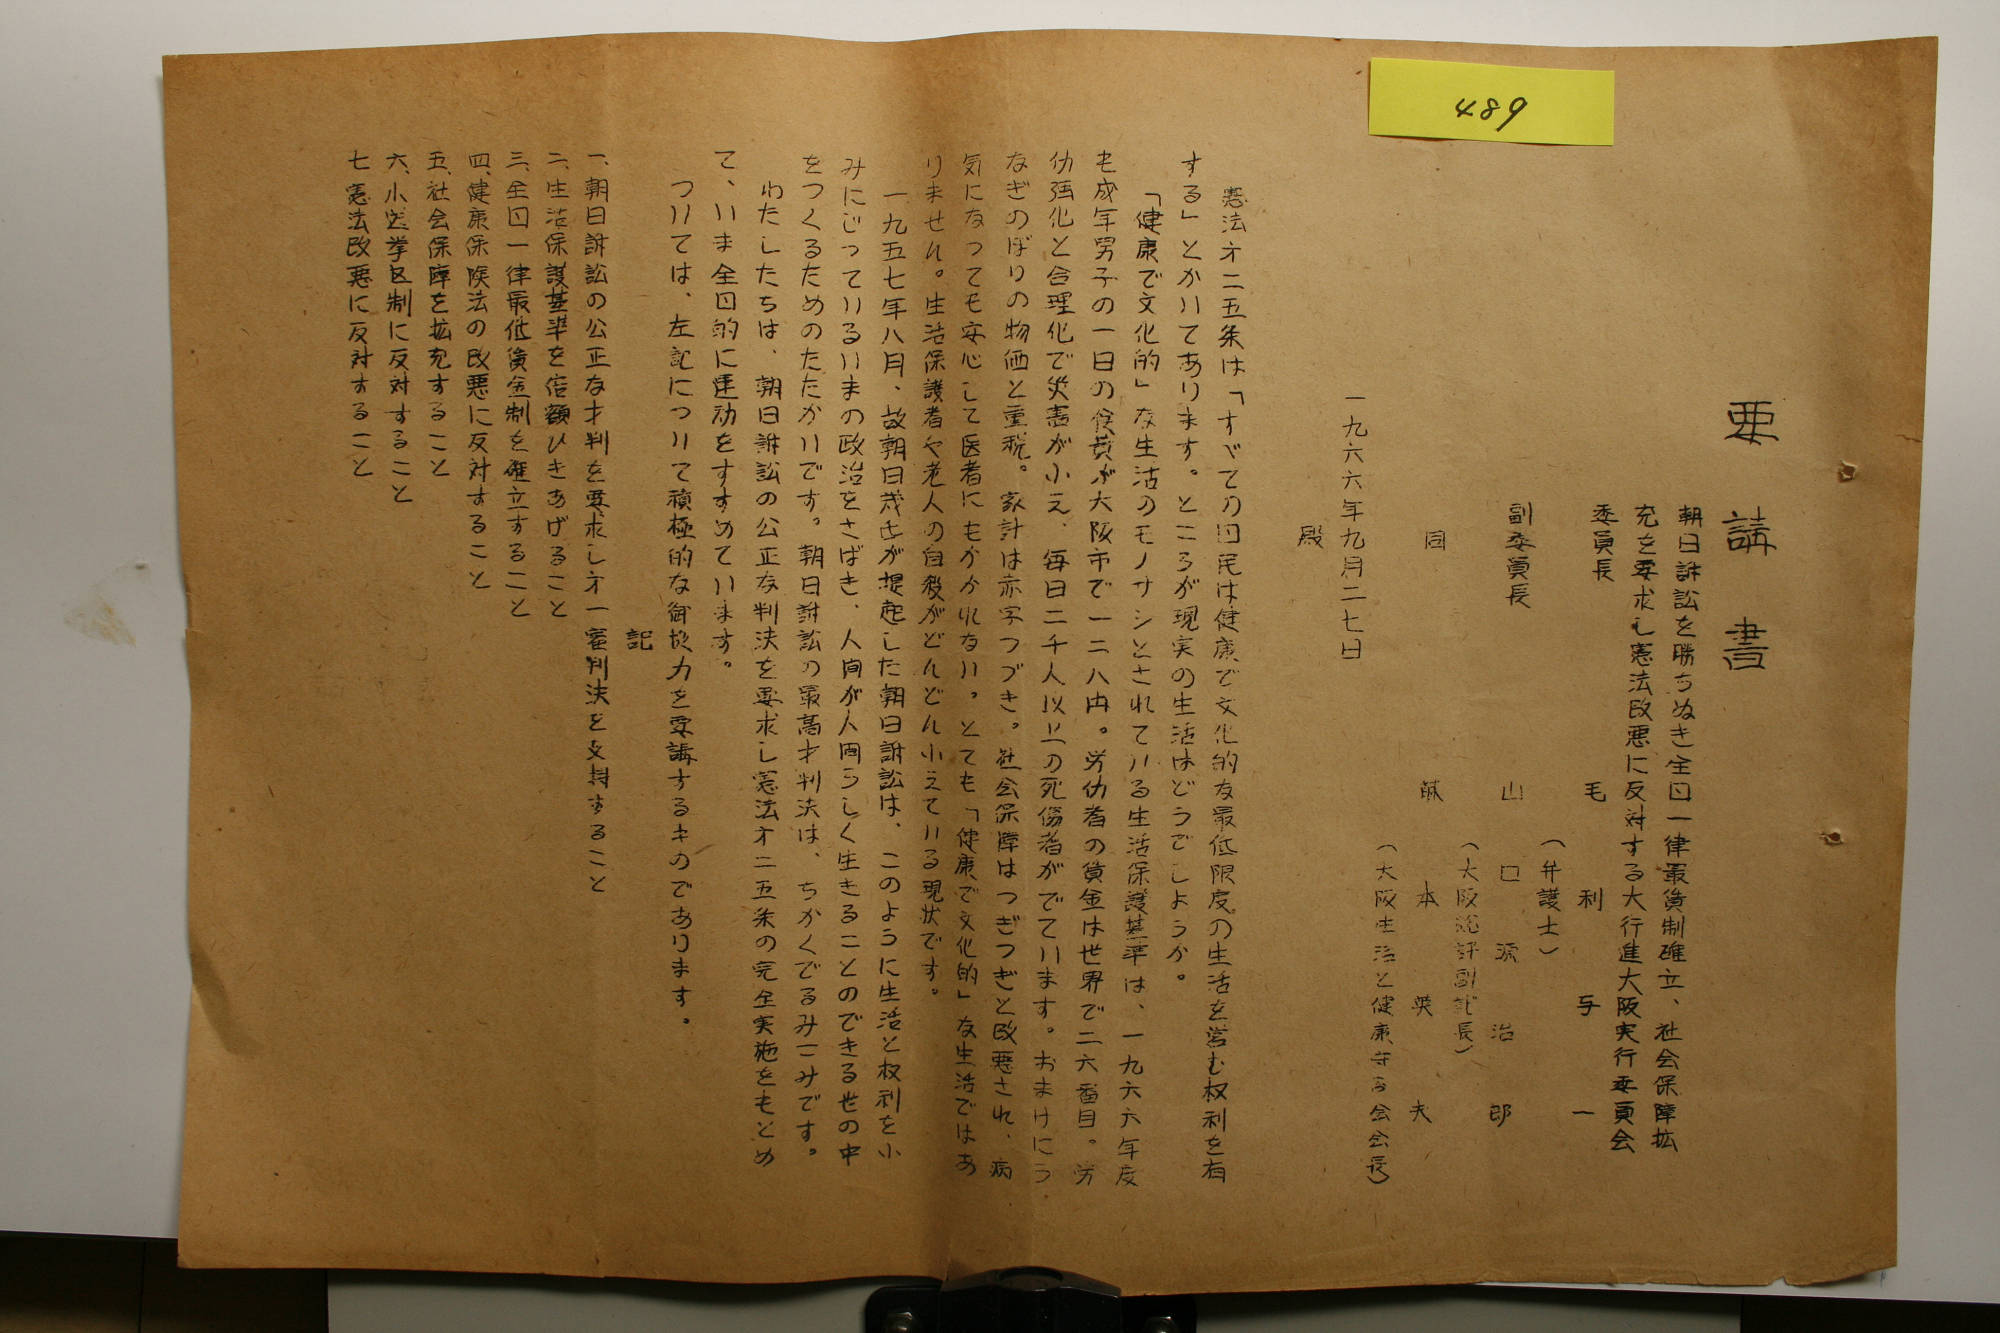 489
要講書
朝日訴訟を勝ちぬき全国一律最賃制確立、社会保障拡
充を要求し憲法改悪に反対する大行進大阪実行委員会
委員長 毛利与一
(弁護士)
副委員長 山口源治郎
(大阪総評副議長)
同 本英夫
(大阪生活と健康守る会会長)
一九六六年九月二七日
殿
憲法才二五条は「すべての国民は健康で文化的な最低限度の生活を営む权利を有
する」とかいてあります。ところが現実の生活はどうでしようか。
「健康で文化的」な生活のモノサシとされている生活保護基準は、一九六六年度
も成年男子の一日の食費が大阪市で一二八円。労仂者の賃金は世界で二六番目。労
仂強化と合理化で災害が小え、毎日二千人以上の死傷者がでています。おまけにう
なぎのぼりの物価と重税。家計は赤字つづき。社会保障はつぎつぎと改悪され、病
気になっても安心して医者にもかかれない。とても「健康で文化的」な生活ではあ
りません。生活保護者や老人の自殺がどんどん小えている現状です。
一九五七年八月、故朝日茂氏が提起した朝日訴訟は、このように生活と权利を小
みにじっているいまの政治をさばき、人间が人间らしく生きることのできる世の中
をつくるためのたたかいです。朝日訴訟の最高才判決は、ちかくでるみこみです。
わたしたちは、朝日訴訟の公正な判決を要求し憲法才二五条の完全実施をもとめ
て、いま全国的に運动をすすめています。
ついては、左記について積極的な御协力を要講するキのであります。
記
一、朝日訴訟の公正な才判を要求し才一審判決を支持すること
二、生活保護基準を倍額ひきあげること
三、全国一律最低賃金制を確立すること
四、健康保険法の改悪に反対すること
五、社会保障を拡充すること
六、小選挙区制に反対すること
七 憲法改悪に反対すること